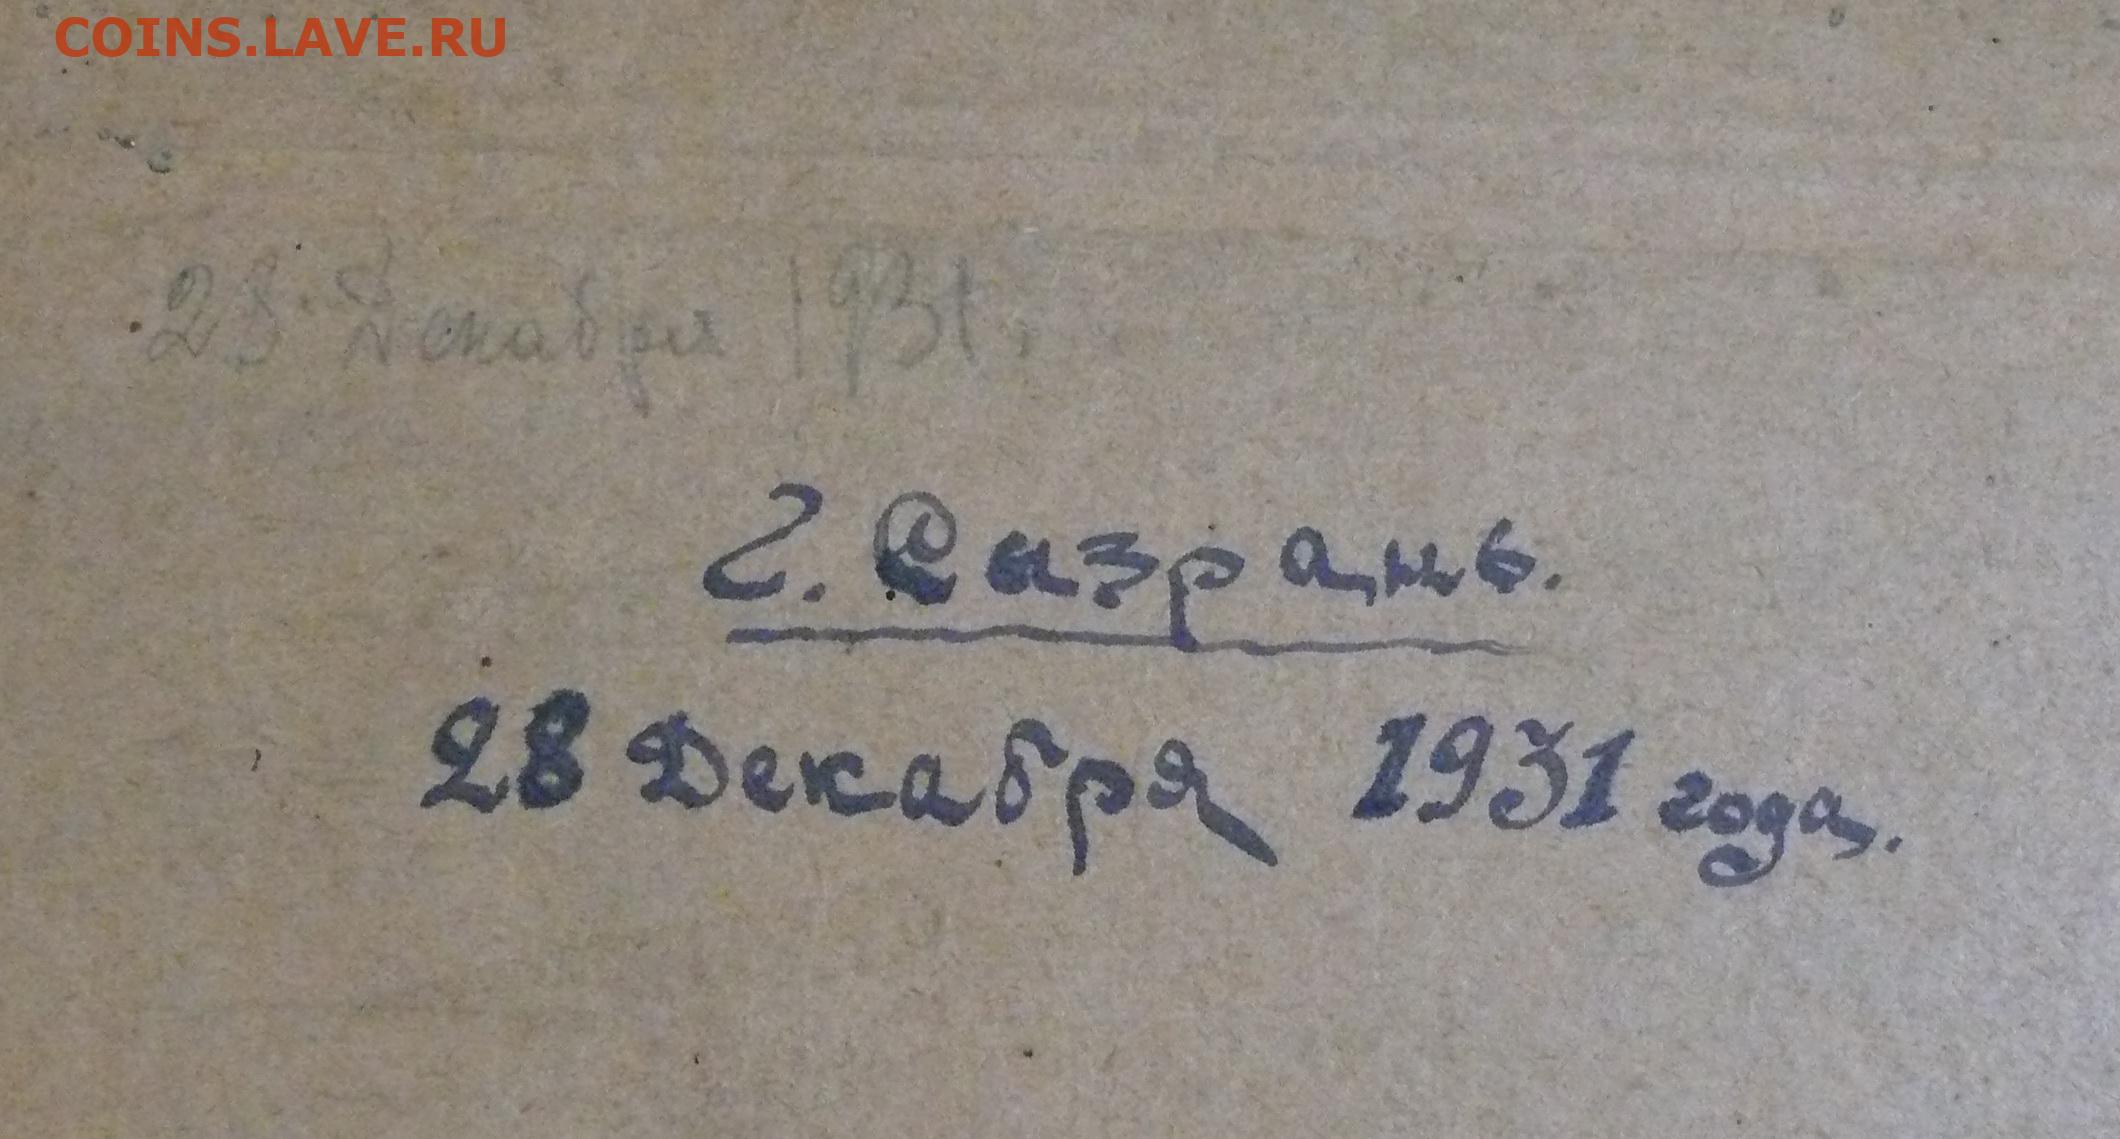 COINS.LAVE.RU
28 Декабря 1931.
г. Сазрань.
28 Декабря 1931 года.